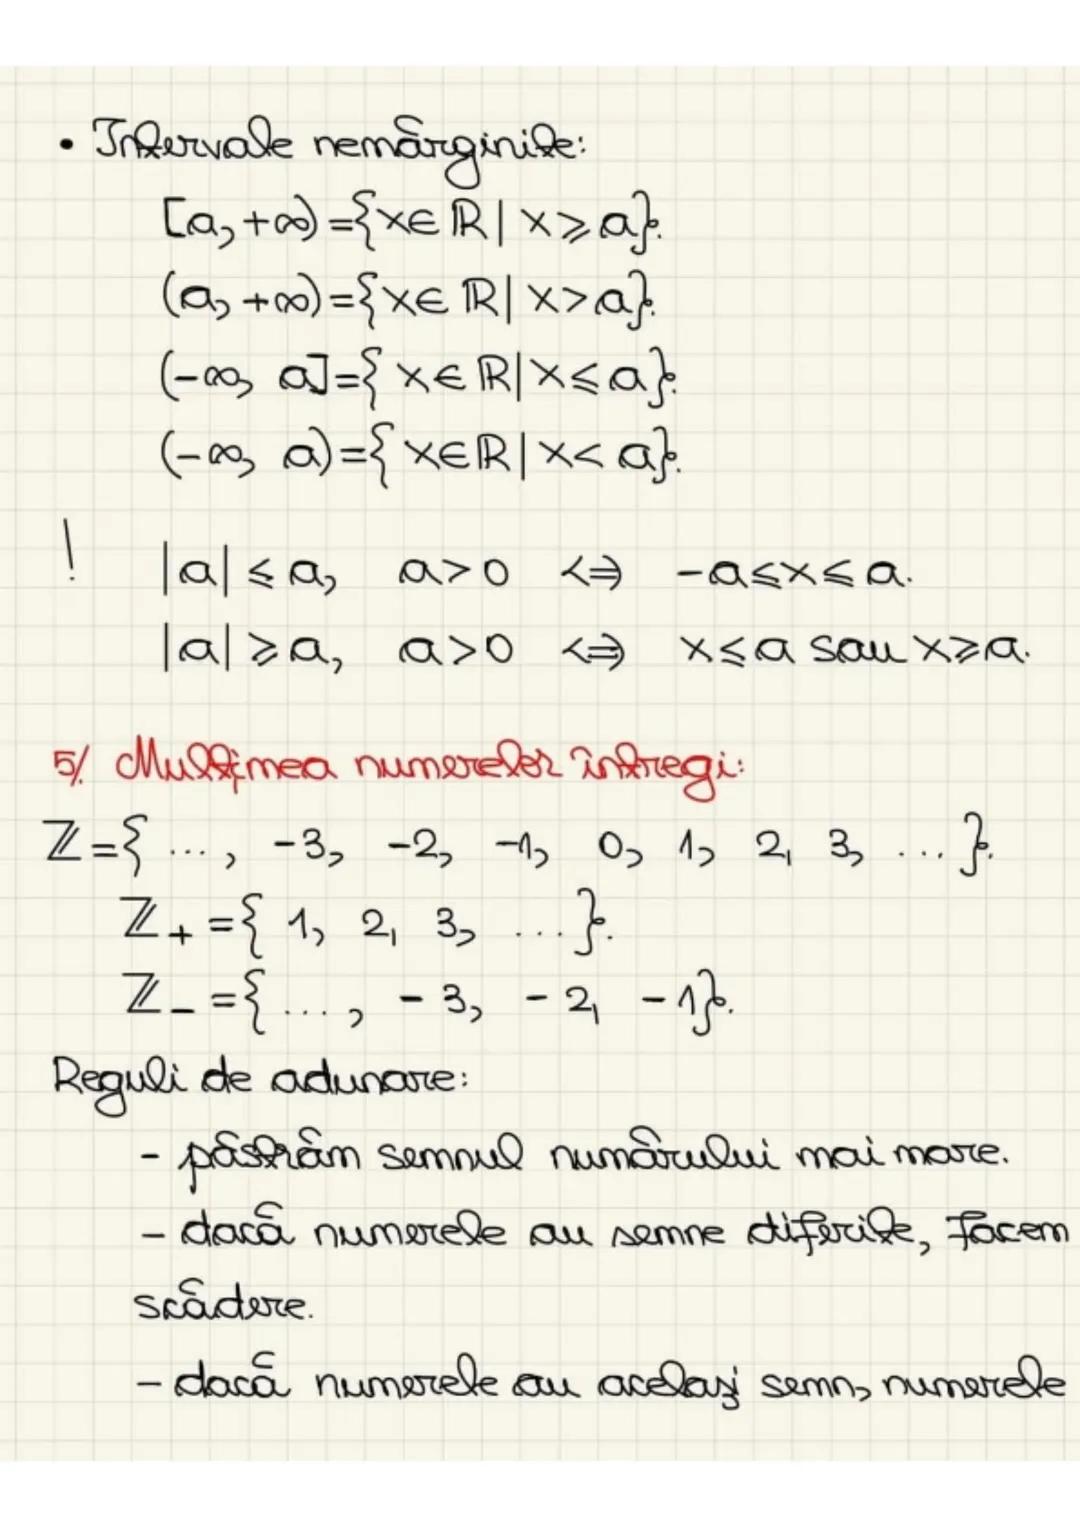 • Intervale nemărginite:
[a, +∞) = {x∈ℝ | x ⩾ a}.
(a, +∞) = {x∈ℝ | x > a}.
(-∞, a] = {x∈ℝ | x ⩽ a}.
(-∞, a) = {x∈ℝ | x < a}.
! |a| ⩽ a, a>0 <=> -a⩽x⩽a.
|a| ⩾ a, a>0 <=> x⩽a sau x⩾a.
5/ Mulțimea numerelor întregi:
ℤ = { ..., -3, -2, -1, 0, 1, 2, 3, ... }.
ℤ₊ = { 1, 2, 3, ... }.
ℤ₋ = { ..., -3, -2, -1}.
Reguli de adunare:
- păstrăm semnul numărului mai mare.
- dacă numerele au semne diferite, facem
scădere.
- dacă numerele au același semn, numerele